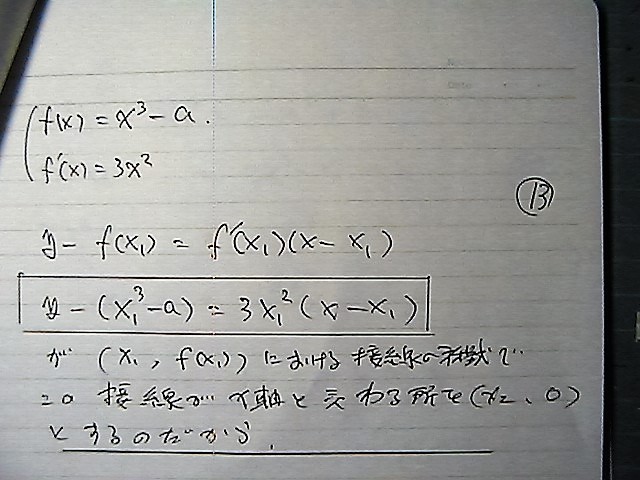 f(x) = x³ - a.
f'(x) = 3x²
⑬
y - f(x₁) = f'(x₁)(x - x₁)
y - (x₁³ - a) = 3x₁²(x - x₁)
が (x₁, f(x₁)) における接線の式で
この接線がx軸と交わる所を(x₂、0)
とするのだから、